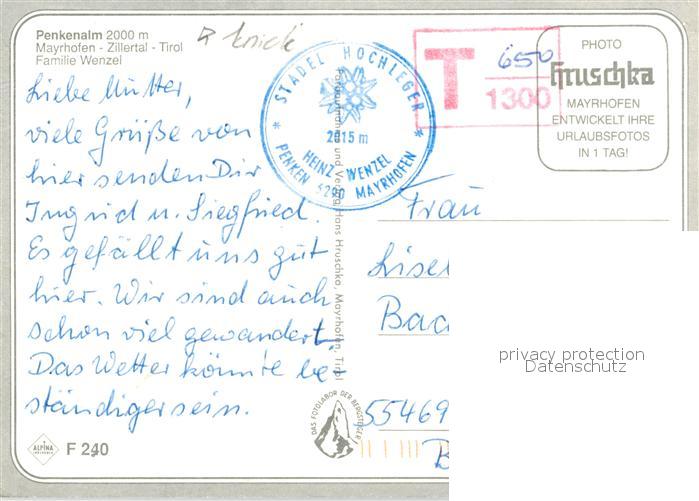 Penkenalm 2000 m
Mayrhofen - Zillertal - Tirol
Familie Wenzel
Liebe Mutter,
viele Grüße von
hier senden Dir
Ingrid u. Siegfried.
Es gefällt uns gut
hier. Wir sind auch
schon viel gewandert.
Das Wetter könnte be-
ständiger sein.
ALPINA
F 240
knick
STADEL HOCHLEGER
2015 m
HEINZ WENZEL
PENKEN 6290 MAYRHOFEN
und Verlag Hans Hruschka, Mayrhofen, Tirol
DAS FOTOLABOR DER BERGSTEIGER
T
650
1300
PHOTO
hruschka
MAYRHOFEN
ENTWICKELT IHRE
URLAUBSFOTOS
IN 1 TAG!
Frau
Lisel
Bad
55469
B
privacy protection
Datenschutz